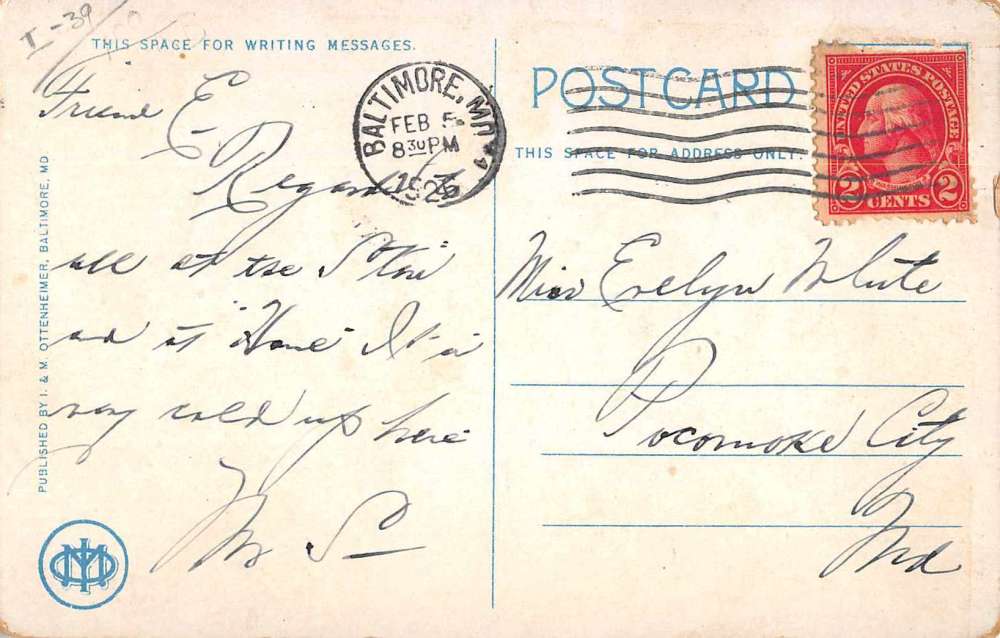 I-39
THIS SPACE FOR WRITING MESSAGES.
Friend E
Regards to
all at the Store
and at "Home" It is
very cold up here
Mr S
PUBLISHED BY I. & M. OTTENHEIMER, BALTIMORE, MD
BALTIMORE, MD
FEB 5
8 30 PM
192
POST CARD
THIS SPACE FOR ADDRESS ONLY.
UNITED STATES POSTAGE
2 CENTS 2
Miss Evelyn White
Pocomoke City
Md